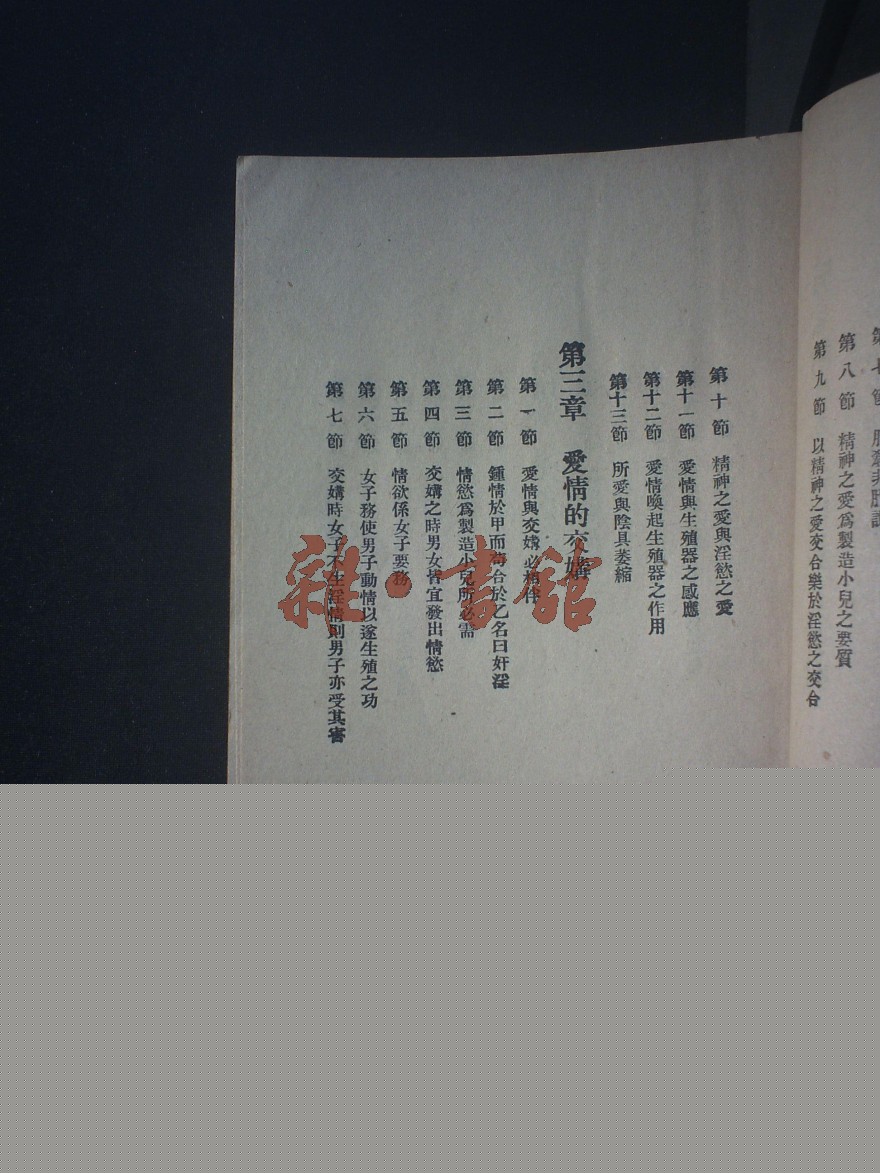 第八節 精神之愛爲製造小兒之要質
第九節 以精神之愛交合樂於淫慾之交合
第十節 精神之愛與淫慾之愛
第十一節 愛情與生殖器之感應
第十二節 愛情喚起生殖器之作用
第十三節 所愛與陰具萎縮
第三章 愛情的交媾
第一節 愛情與交媾必相伴
第二節 鍾情於甲而苟合於乙名曰奸淫
第三節 情慾爲製造小兒所必需
第四節 交媾之時男女皆宜發出情慾
第五節 情欲係女子要務
第六節 女子務使男子動情以遂生殖之功
第七節 交媾時女子不生淫情則男子亦受其害
雜·書館